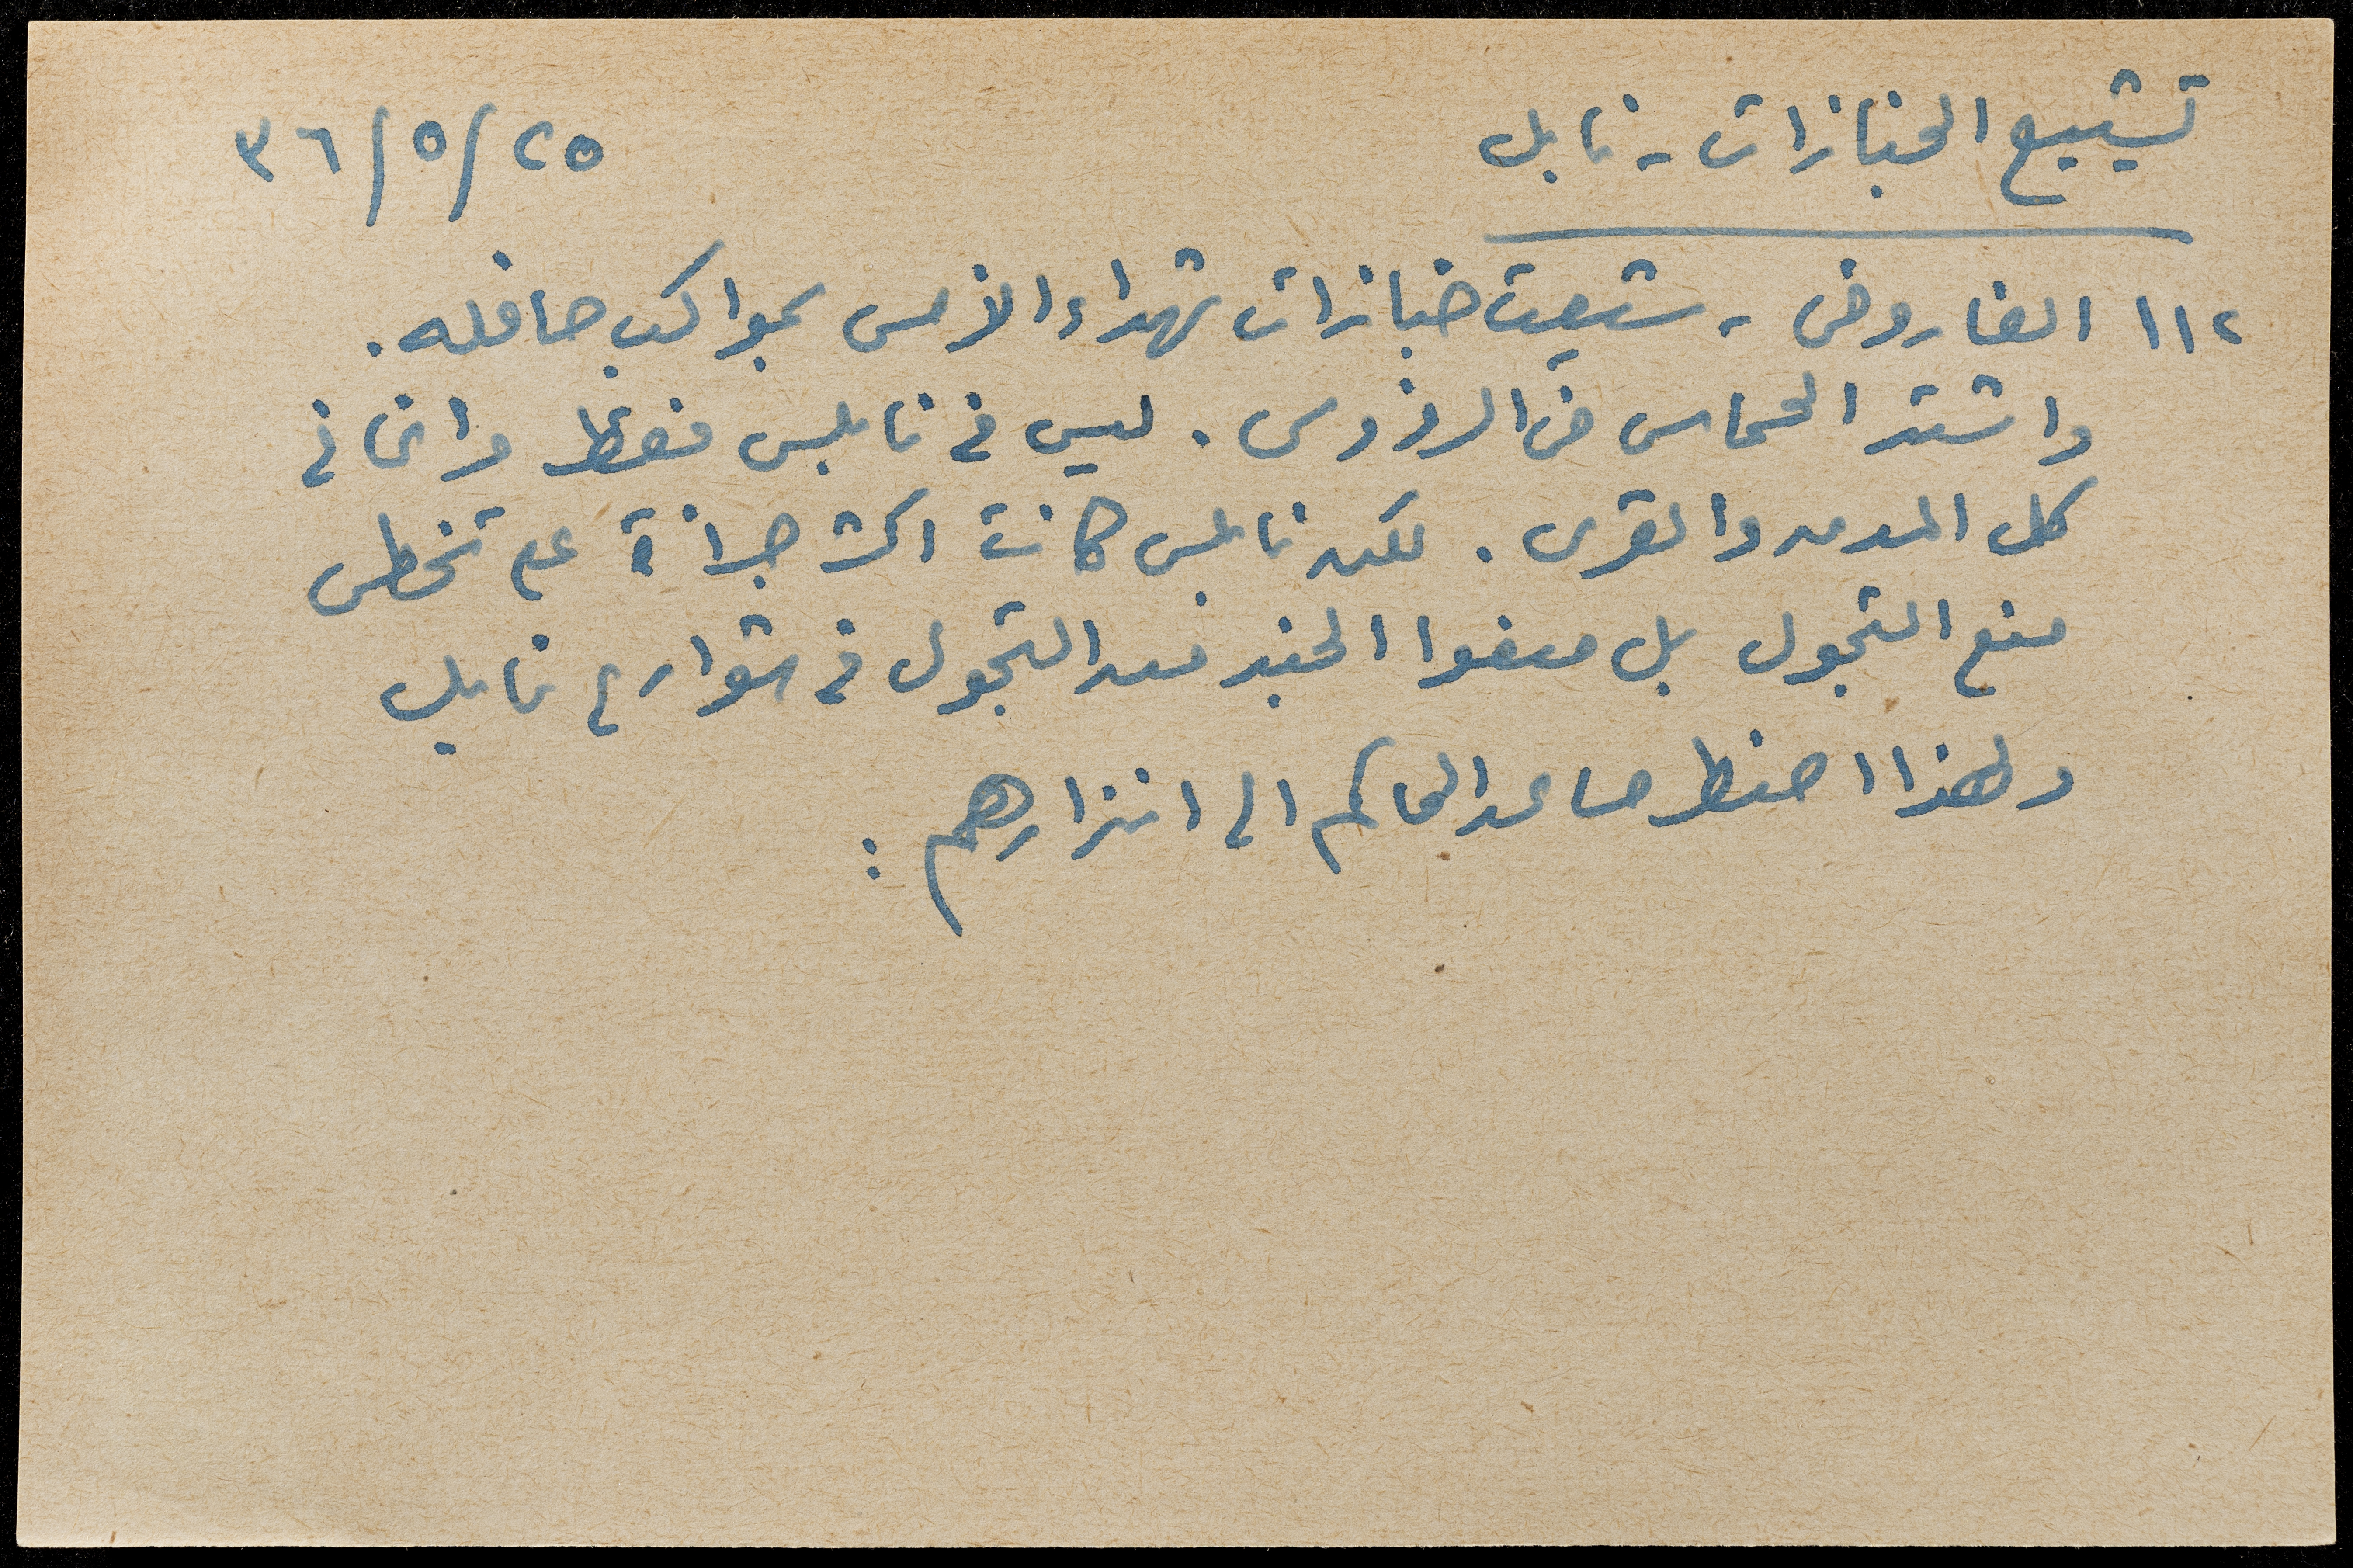 تشييع الجنازات - نابلس ٢٥/٥/٣٦
١١٢ الفاروقي - شيعت جنازات شهداء الأمس بمواكب حافله.
واشتد الحماس في الرؤوس. ليس في نابلس فقط وانما في
كل المدن والقرى. لكن نابلس كانت اكثر جرأة على تخطي
منع التجول بل منعوا الجند من التجول في شوارع نابلس
ولهذا اضطر مساعد الحاكم الى انذارهم: